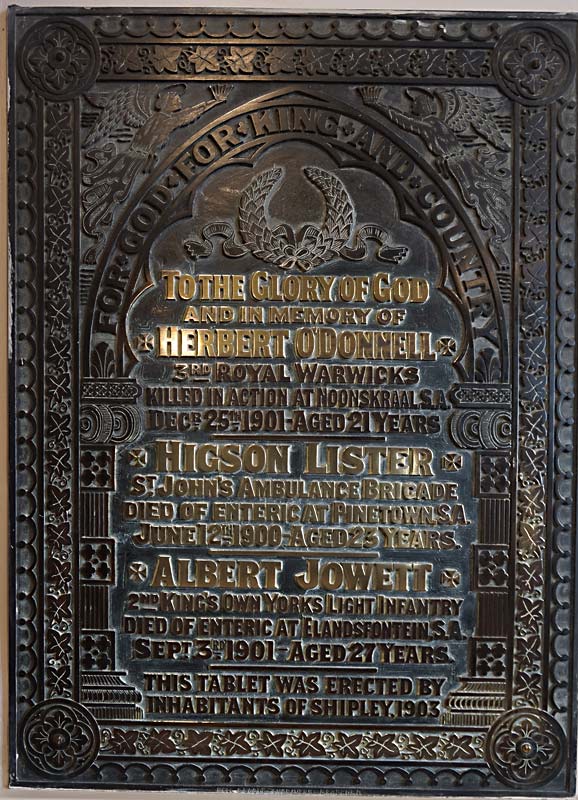 FOR GOD FOR KING AND COUNTRY
TO THE GLORY OF GOD
AND IN MEMORY OF
HERBERT O'DONNELL
3RD ROYAL WARWICKS
KILLED IN ACTION AT NOONSKRAAL, S.A.
DECR 25TH 1901-AGED 21 YEARS
HIGSON LISTER
ST JOHN'S AMBULANCE BRIGADE
DIED OF ENTERIC AT PINETOWN, S.A.
JUNE 12TH 1900-AGED 23 YEARS.
ALBERT JOWETT
2ND KING'S OWN YORKS LIGHT INFANTRY
DIED OF ENTERIC AT ELANDSFONTEIN, S.A.
SEPT 3RD 1901-AGED 27 YEARS.
THIS TABLET WAS ERECTED BY
INHABITANTS OF SHIPLEY, 1903